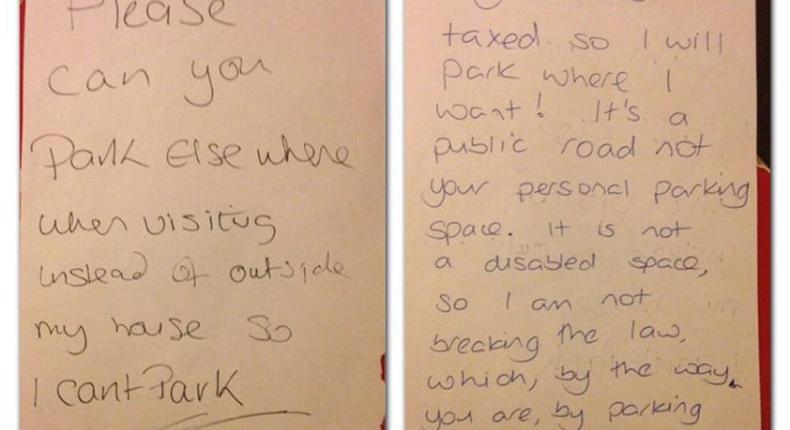 Please
can you
Park Elsewhere
when visitng
instead of outside
my house so
I cant Park
taxed so I will
park where I
want! It's a
public road not
your personal parking
space. It is not
a disabled space,
so I am not
breaking the law,
which, by the way,
you are, by parking